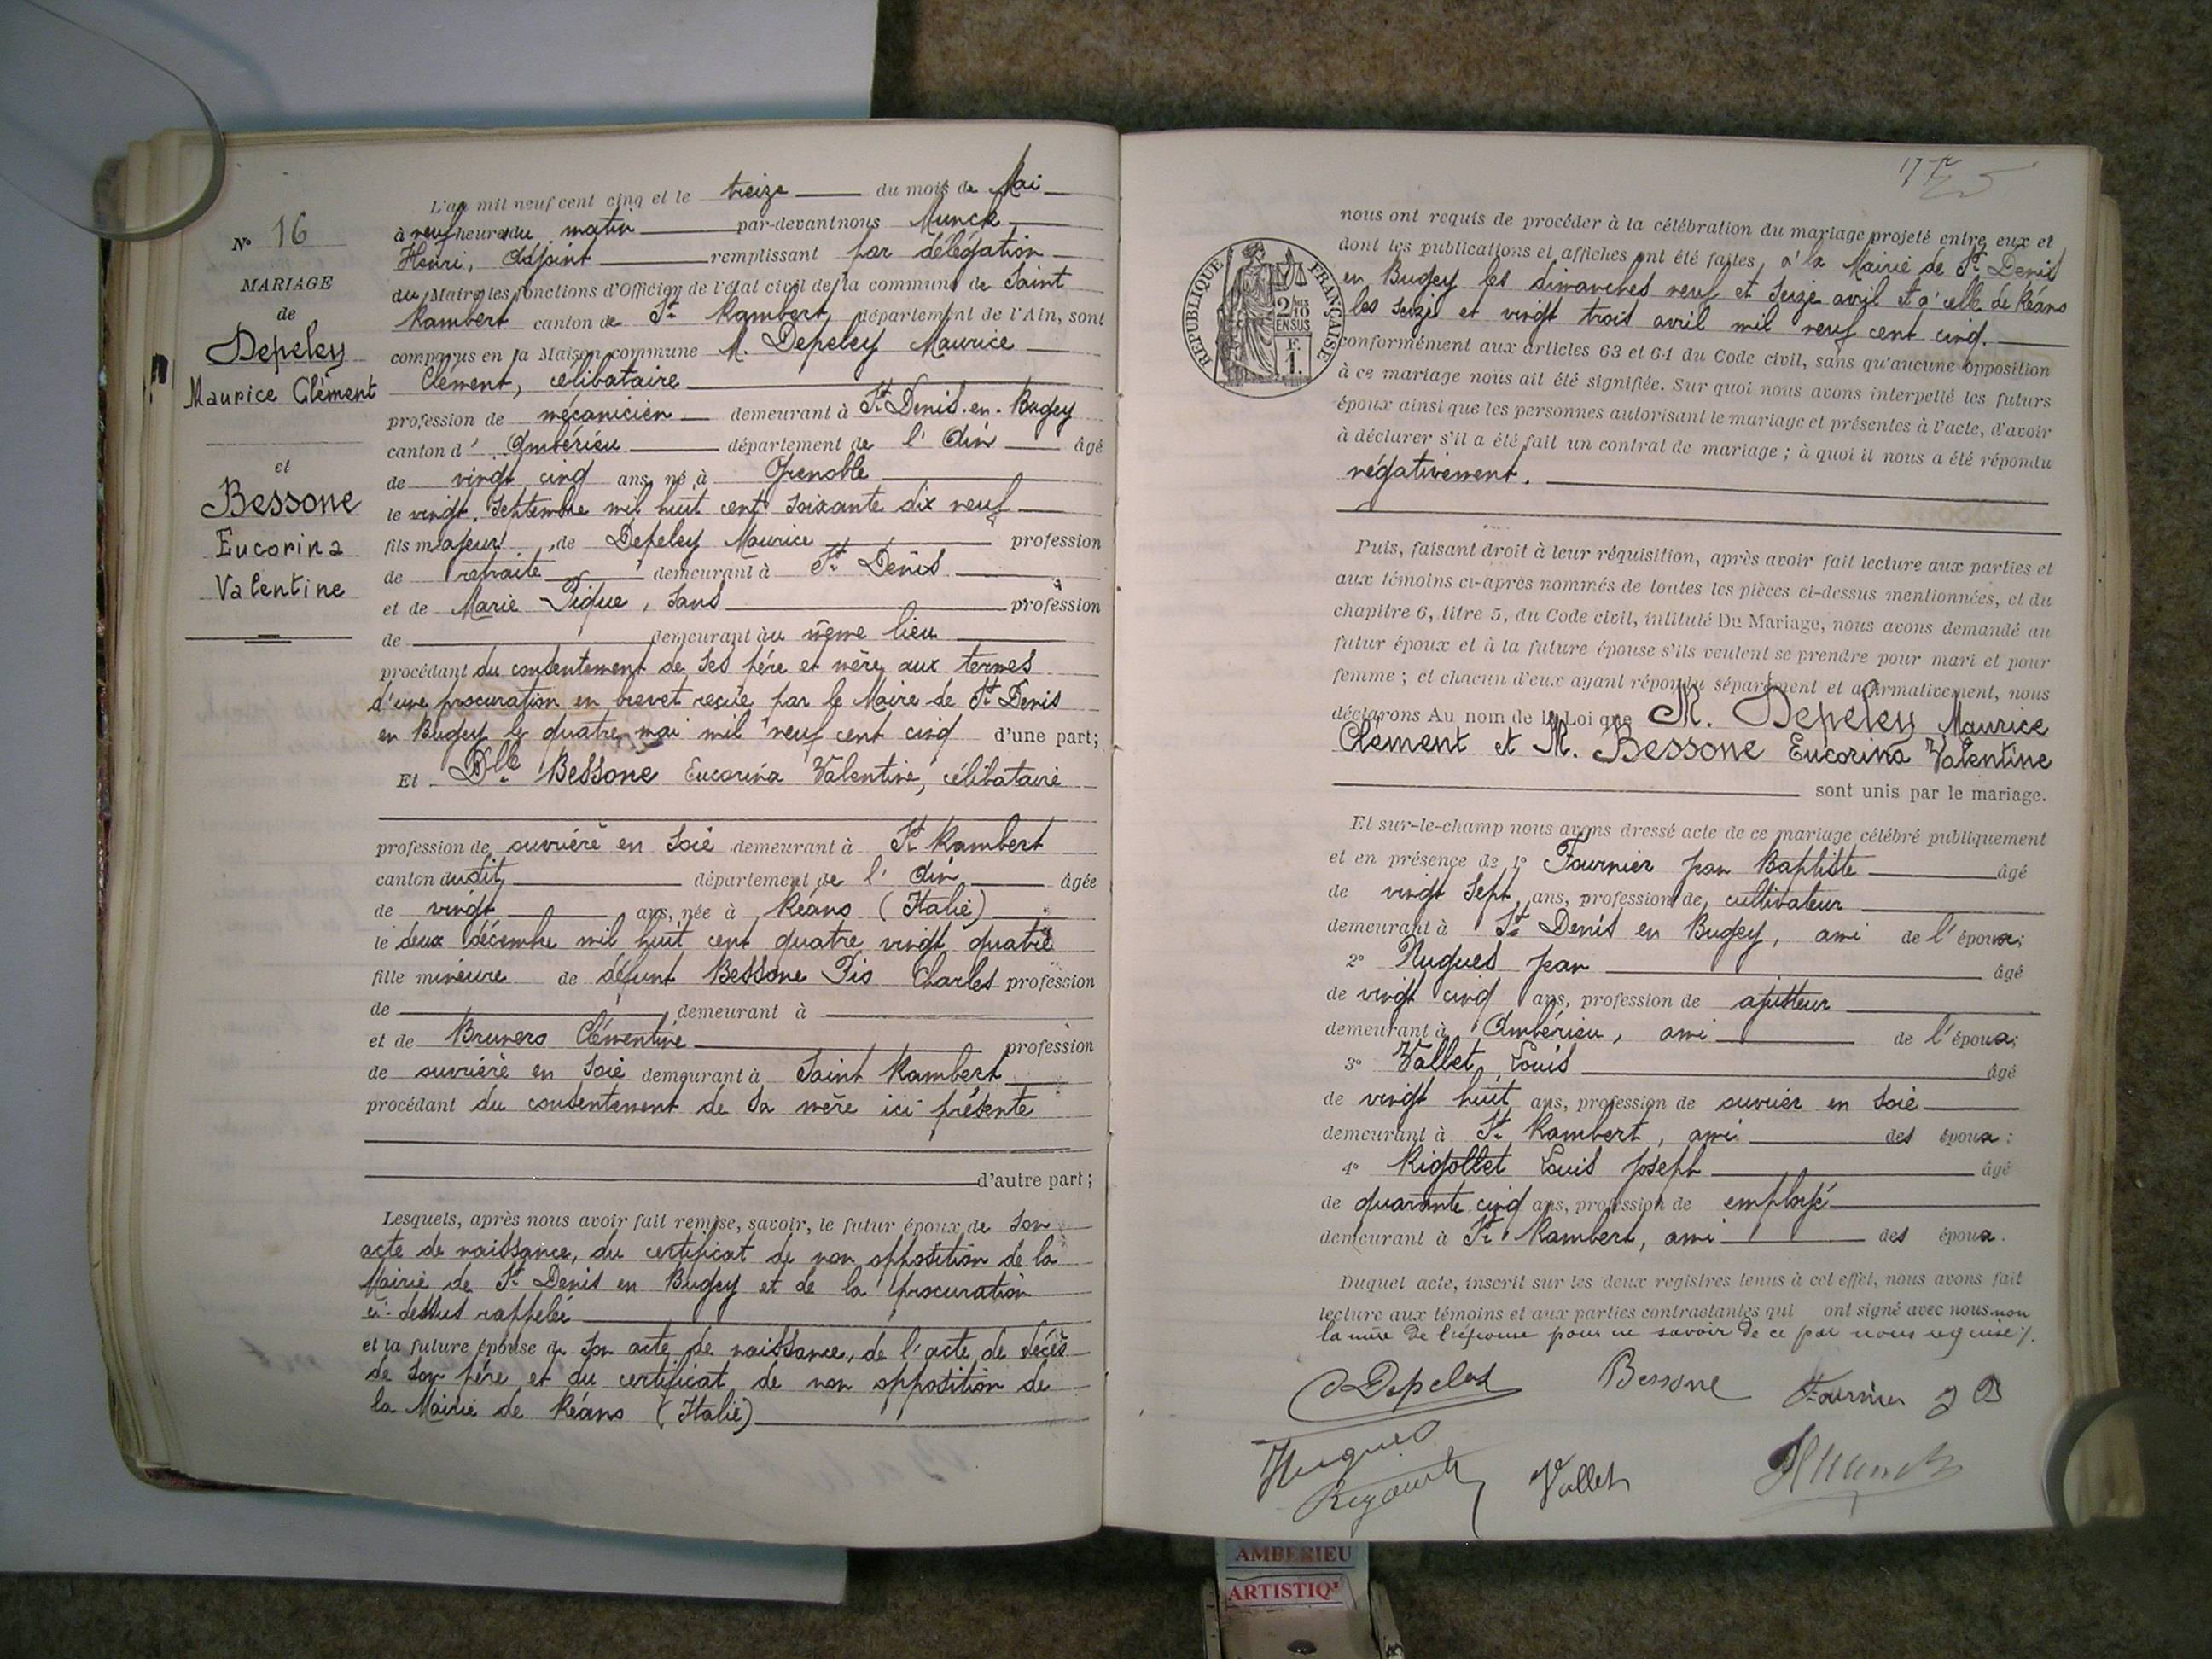 N° 16
MARIAGE
de
Depeley
Maurice Clément
et
Bessone
Eucarina
Valentine
L'an mil neuf cent cinq et le treize du mois de Mai
à neuf heures du matin par-devant nous Munck
Henri, Adjoint remplissant par délégation
du Maire les fonctions d'Officier de l'état civil de la commune de Saint
Rambert canton de St Rambert, département de l'Ain, sont
comparus en la Maison commune M. Depeley Maurice
Clément, célibataire
profession de mécanicien demeurant à St Denis-en-Bugey
canton d'Ambérieu département de l'Ain âgé
de vingt cinq ans, né à Grenoble
le vingt Septembre mil huit cent soixante dix neuf
fils majeur de Depeley Maurice profession
de retraité demeurant à St Denis
et de Marie Pique, sans profession
de demeurant au même lieu
procédant du consentement de ses père et mère aux termes
d'une procuration en brevet reçue par le Maire de St Denis
en Bugey le quatre mai mil neuf cent cinq d'une part;
Et Dlle Bessone Eucarina Valentine, célibataire
profession de ouvrière en soie demeurant à St Rambert
canton dudit département de l'Ain âgée
de vingt ans, née à Réano (Italie)
le deux décembre mil huit cent quatre vingt quatre
fille mineure de défunt Bessone Pio Charles profession
de demeurant à
et de Brunero Clémentine profession
de ouvrière en soie demeurant à Saint Rambert
procédant du consentement de sa mère ici présente
d'autre part;
Lesquels, après nous avoir fait remise, savoir, le futur époux de son
acte de naissance, du certificat de non opposition de la
Mairie de St Denis en Bugey et de la procuration
ci-dessus rappelée
et la future épouse de son acte de naissance, de l'acte de décès
de son père et du certificat de non opposition de
la Mairie de Réano (Italie)
17
RÉPUBLIQUE FRANÇAISE
2/10mes
EN SUS
F.
1.
nous ont requis de procéder à la célébration du mariage projeté entre eux et
dont les publications et affiches ont été faites, à la Mairie de St Denis
en Bugey les dimanches neuf et seize avril et à celle de Réano
les seize et vingt trois avril mil neuf cent cinq.
conformément aux articles 63 et 64 du Code civil, sans qu'aucune opposition
à ce mariage nous ait été signifiée. Sur quoi nous avons interpellé les futurs
époux ainsi que les personnes autorisant le mariage et présentes à l'acte, d'avoir
à déclarer s'il a été fait un contrat de mariage; à quoi il nous a été répondu
négativement.
Puis, faisant droit à leur réquisition, après avoir fait lecture aux parties et
aux témoins ci-après nommés de toutes les pièces ci-dessus mentionnées, et du
chapitre 6, titre 5, du Code civil, intitulé Du Mariage, nous avons demandé au
futur époux et à la future épouse s'ils veulent se prendre pour mari et pour
femme; et chacun d'eux ayant répondu séparément et affirmativement, nous
déclarons Au nom de la Loi que M. Depeley Maurice
Clément et M. Bessone Eucorina Valentine
sont unis par le mariage.
Et sur-le-champ nous avons dressé acte de ce mariage célébré publiquement
et en présence de 1° Fournier Jean Baptiste âgé
de vingt sept ans, profession de cultivateur
demeurant à St Denis en Bugey, ami de l'époux;
2° Hugues Jean âgé
de vingt cinq ans, profession de ajusteur
demeurant à Ambérieu, ami de l'époux;
3° Vallet Louis âgé
de vingt huit ans, profession de ouvrier en soie
demeurant à St Rambert, ami des époux:
4° Rigollet Louis Joseph âgé
de quarante cinq ans, profession de employé
demeurant à St Rambert, ami des époux.
Duquel acte, inscrit sur les deux registres tenus à cet effet, nous avons fait
lecture aux témoins et aux parties contractantes qui ont signé avec nous non
la mère de l'épouse pour ne savoir de ce par nous requise ./.
Depeley Bessone Fournier J B
Hugues
Vallet HMunck
AMBERIEU
ARTISTIQ'